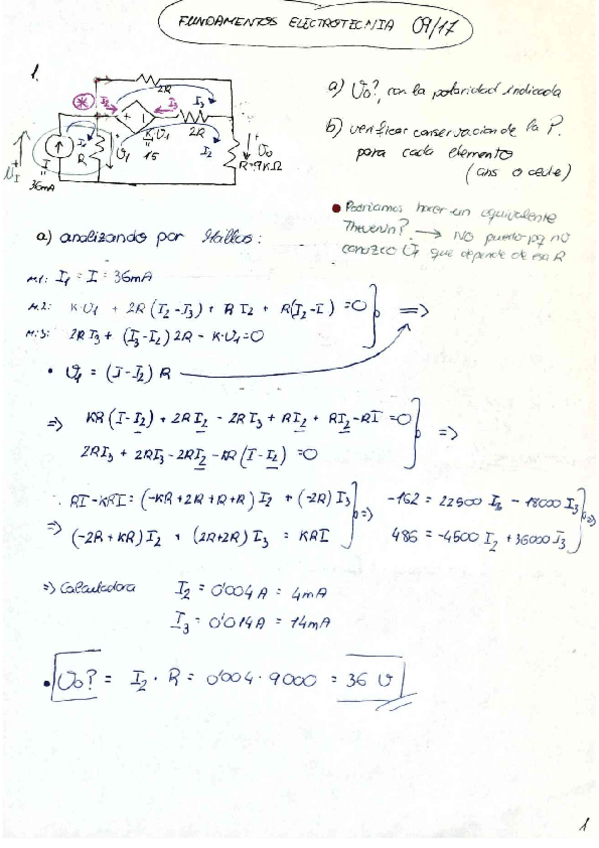 FUNDAMENTOS ELECTROTECNIA 09/17
1.
2R
I₂
I₃
I₃
+
-
K V₁
2R
I
36mA
R
V₁
1'5
I₂
V₀
R=9KΩ
a) V₀?, con la polaridad indicada
b) verificar conservación de la P.
para cada elemento
(ans o cede)
• Podríamos hacer un equivalente
Thevenin? → No puedo pq no
conozco V₁ que depende de esa R
a) analizando por Mallas:
M.1: I₁ = I = 36mA
M.2: K·V₁ + 2R(I₂-I₃) + R I₂ + R(I₂-I) =0
M.3: 2RI₃ + (I₃-I₂)2R - K·V₁=0
=>
• V₁ = (I-I₂) R
=> KR(I-I₂) + 2RI₂ - 2RI₃ + RI₂ + RI₂-RI =0
2RI₃ + 2RI₃-2RI₂-KR(I-I₂) =0
=>
RI-KRI = (-KR+2R+R+R)I₂ + (-2R)I₃
=> (-2R+KR)I₂ + (2R+2R)I₃ = KRI
=>
-162 = 22500 I₂ - 18000 I₃
486 = -4500 I₂ + 36000 I₃
=>
=> Calculadora I₂ = 0'004A = 4mA
I₃ = 0'014A = 14mA
• V₀? = I₂ · R = 0'004 · 9000 = 36 V
1